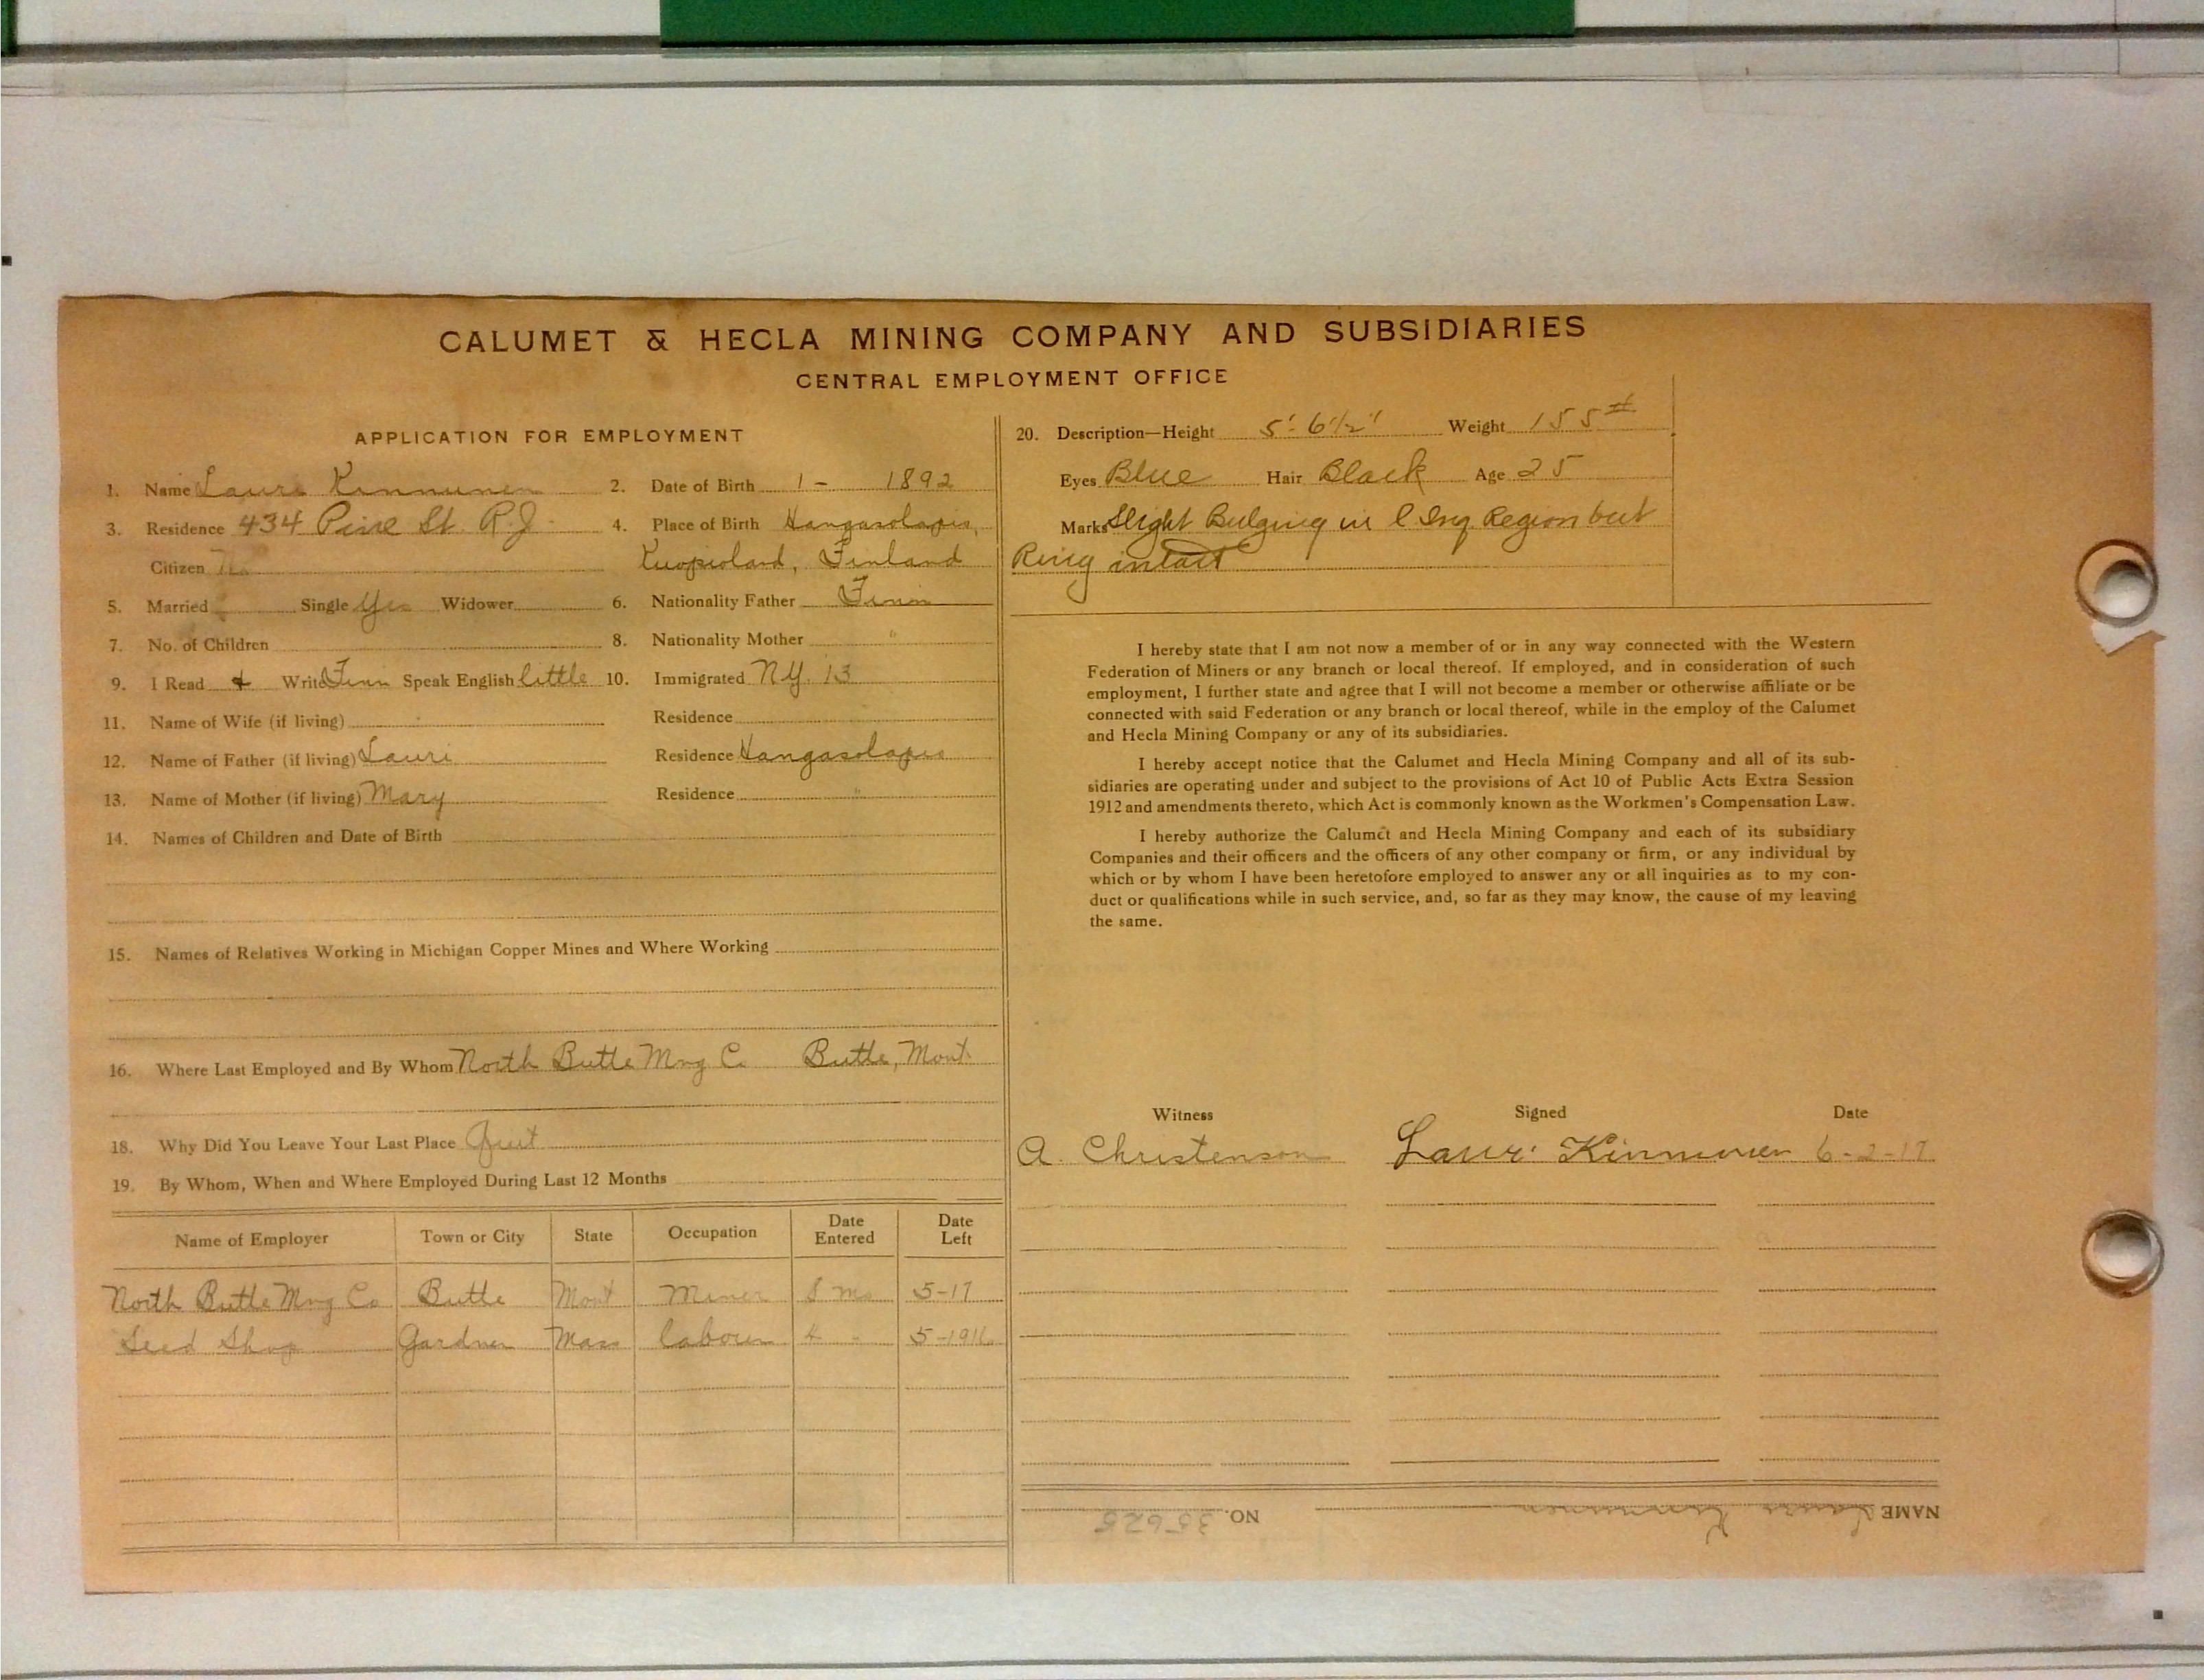 CALUMET & HECLA MINING COMPANY AND SUBSIDIARIES
CENTRAL EMPLOYMENT OFFICE
APPLICATION FOR EMPLOYMENT
1. Name Lauri Kinnunen 2. Date of Birth 1 - 1892
3. Residence 434 Pine St. R.J. 4. Place of Birth Hangasolapis,
Citizen No Kuopiolard, Finland
5. Married Single Yes Widower 6. Nationality Father Finn
7. No. of Children 8. Nationality Mother "
9. I Read & Write Finn Speak English little 10. Immigrated N.Y. 13
11. Name of Wife (if living) Residence
12. Name of Father (if living) Lauri Residence Hangasolapis
13. Name of Mother (if living) Mary Residence "
14. Names of Children and Date of Birth
15. Names of Relatives Working in Michigan Copper Mines and Where Working
16. Where Last Employed and By Whom North Butte Mng C. Butte, Mont.
18. Why Did You Leave Your Last Place Quit
19. By Whom, When and Where Employed During Last 12 Months
Name of Employer Town or City State Occupation Date Entered Date Left
North Butte Mng Co Butte Mont Miner 8 mo 5-17
Seed Shop Gardner Mass labourer 4 " 5-1916
20. Description—Height 5'-6½" Weight 155#
Eyes Blue Hair Black Age 25
Marks Slight Bulging in l Ing Region but
Ring intact
I hereby state that I am not now a member of or in any way connected with the Western
Federation of Miners or any branch or local thereof. If employed, and in consideration of such
employment, I further state and agree that I will not become a member or otherwise affiliate or be
connected with said Federation or any branch or local thereof, while in the employ of the Calumet
and Hecla Mining Company or any of its subsidiaries.
I hereby accept notice that the Calumet and Hecla Mining Company and all of its sub-
sidiaries are operating under and subject to the provisions of Act 10 of Public Acts Extra Session
1912 and amendments thereto, which Act is commonly known as the Workmen's Compensation Law.
I hereby authorize the Calumet and Hecla Mining Company and each of its subsidiary
Companies and their officers and the officers of any other company or firm, or any individual by
which or by whom I have been heretofore employed to answer any or all inquiries as to my con-
duct or qualifications while in such service, and, so far as they may know, the cause of my leaving
the same.
Witness Signed Date
A. Christenson Lauri Kinnunen 6-2-17
NAME Lauri Kinnunen NO. 35625